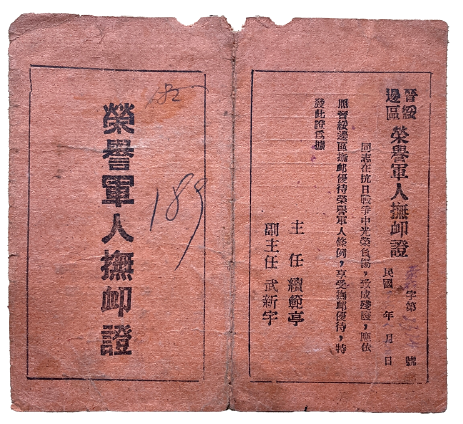 晉綏
邊區
榮譽軍人撫卹證
字第 號
民國 年 月 日
同志在抗日戰爭中光榮負傷，致成殘廢，應依
照晉綏邊區撫卹優待榮譽軍人條例，享受撫卹優待，特
發此證爲據
主任 續範亭
副主任 武新宇
189
榮譽軍人撫卹證